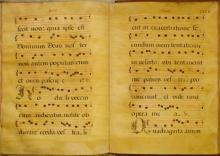 fecit nos: quia ipse est
Dominus Deus nos ter
nos autem populus eius
et oues pascue e ius
Ho die si vocem
eius audieritis nolite ob
durare corda ves tra
in exacerbatione se
cundum diem tentationis
in deserto ubi tentaue
runt me patres vestri
runt et vide runt
opera me a
Quadraginta annos